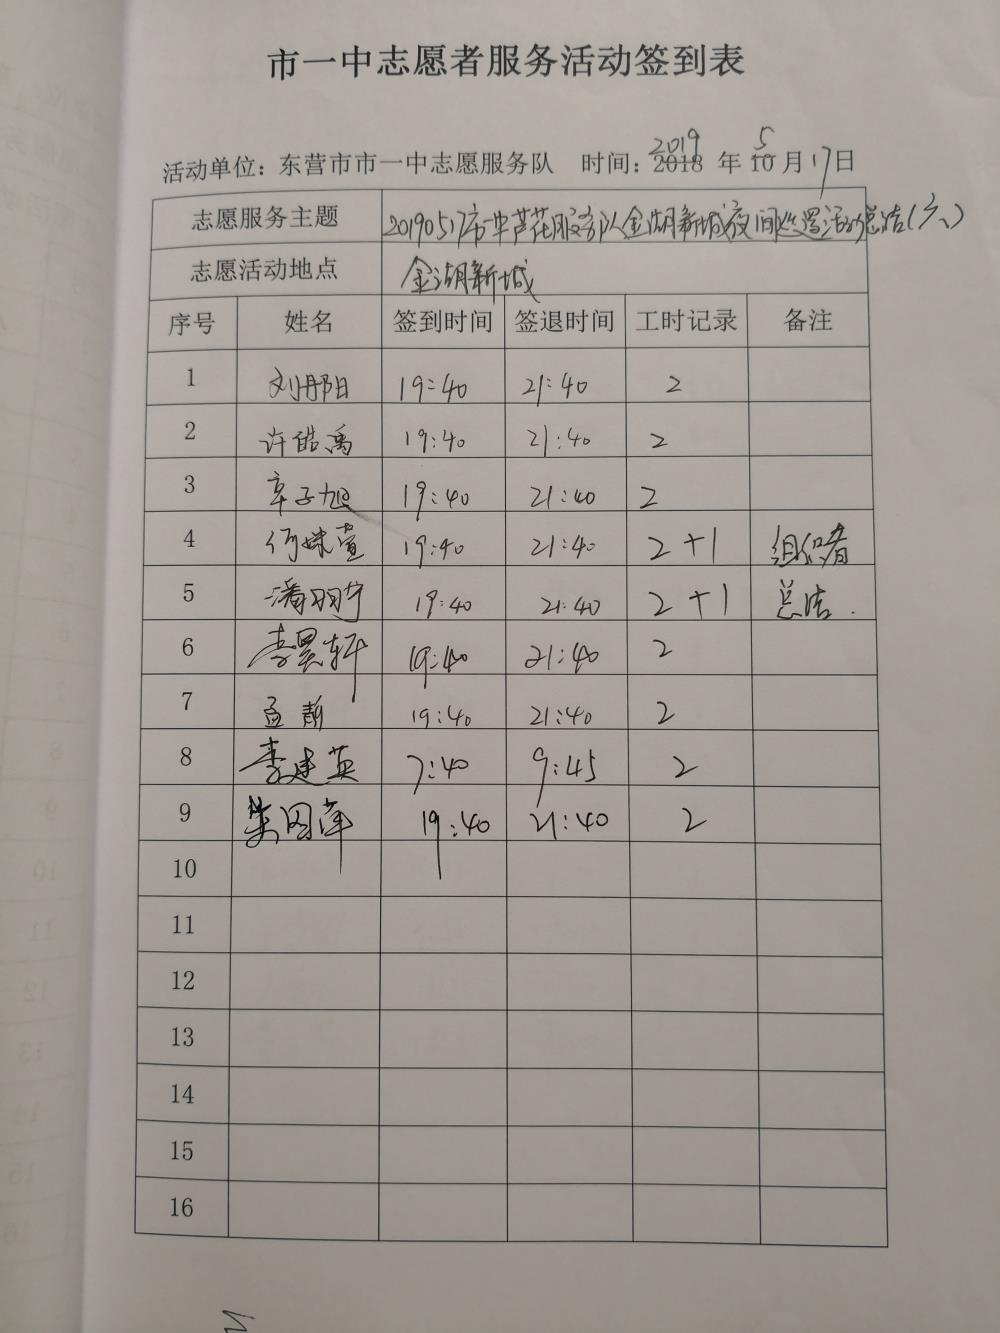 市一中志愿者服务活动签到表
2019 5
活动单位：东营市市一中志愿服务队 时间：2018 年 10 月 17 日
志愿服务主题 20190517市一中芦花服务队金湖新城夜间巡逻活动总结(六)
志愿活动地点 金湖新城
序号 姓名 签到时间 签退时间 工时记录 备注
1 刘丹阳 19:40 21:40 2
2 许皓禹 19:40 21:40 2
3 辛子旭 19:40 21:40 2
4 何姝萱 19:40 21:40 2+1 组织者
5 潘羽宁 19:40 21:40 2+1 总结.
6 李昊轩 19:40 21:40 2
7 孟静 19:40 21:40 2
8 李建英 7:40 9:45 2
9 19:40 21:40 2
10
11
12
13
14
15
16